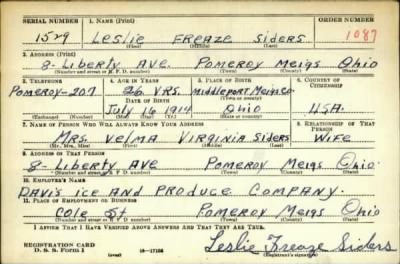 SERIAL NUMBER 1. NAME (Print) ORDER NUMBER
1529 Leslie Freaze Siders 1087
(First) (Middle) (Last)
2. ADDRESS (Print)
8-Liberty Ave. Pomeroy Meigs Ohio
(Number and street or R. F. D. number) (Town) (County) (State)
3. TELEPHONE 4. AGE IN YEARS 5. PLACE OF BIRTH 6. COUNTRY OF CITIZENSHIP
Pomeroy-207 26 YRS. Middleport Meigs Co.
DATE OF BIRTH (Town or county)
July 16 1914 Ohio USA.
(Exchange) (Number) (Mo.) (Day) (Yr.) (State or country)
7. NAME OF PERSON WHO WILL ALWAYS KNOW YOUR ADDRESS 8. RELATIONSHIP OF THAT PERSON
Mrs. Velma Virginia Siders Wife
(Mr., Mrs., Miss) (First) (Middle) (Last)
9. ADDRESS OF THAT PERSON
8-Liberty Ave Pomeroy Meigs Ohio
(Number and street or R. F. D. number) (Town) (County) (State)
10. EMPLOYER'S NAME
Davis Ice and Produce Company.
11. PLACE OF EMPLOYMENT OR BUSINESS
Cole St Pomeroy Meigs Ohio
(Number and street or R. F. D. number) (Town) (County) (State)
I AFFIRM THAT I HAVE VERIFIED ABOVE ANSWERS AND THAT THEY ARE TRUE.
REGISTRATION CARD
D. S. S. Form 1 (over) Leslie Freaze Siders
(Registrant's signature)